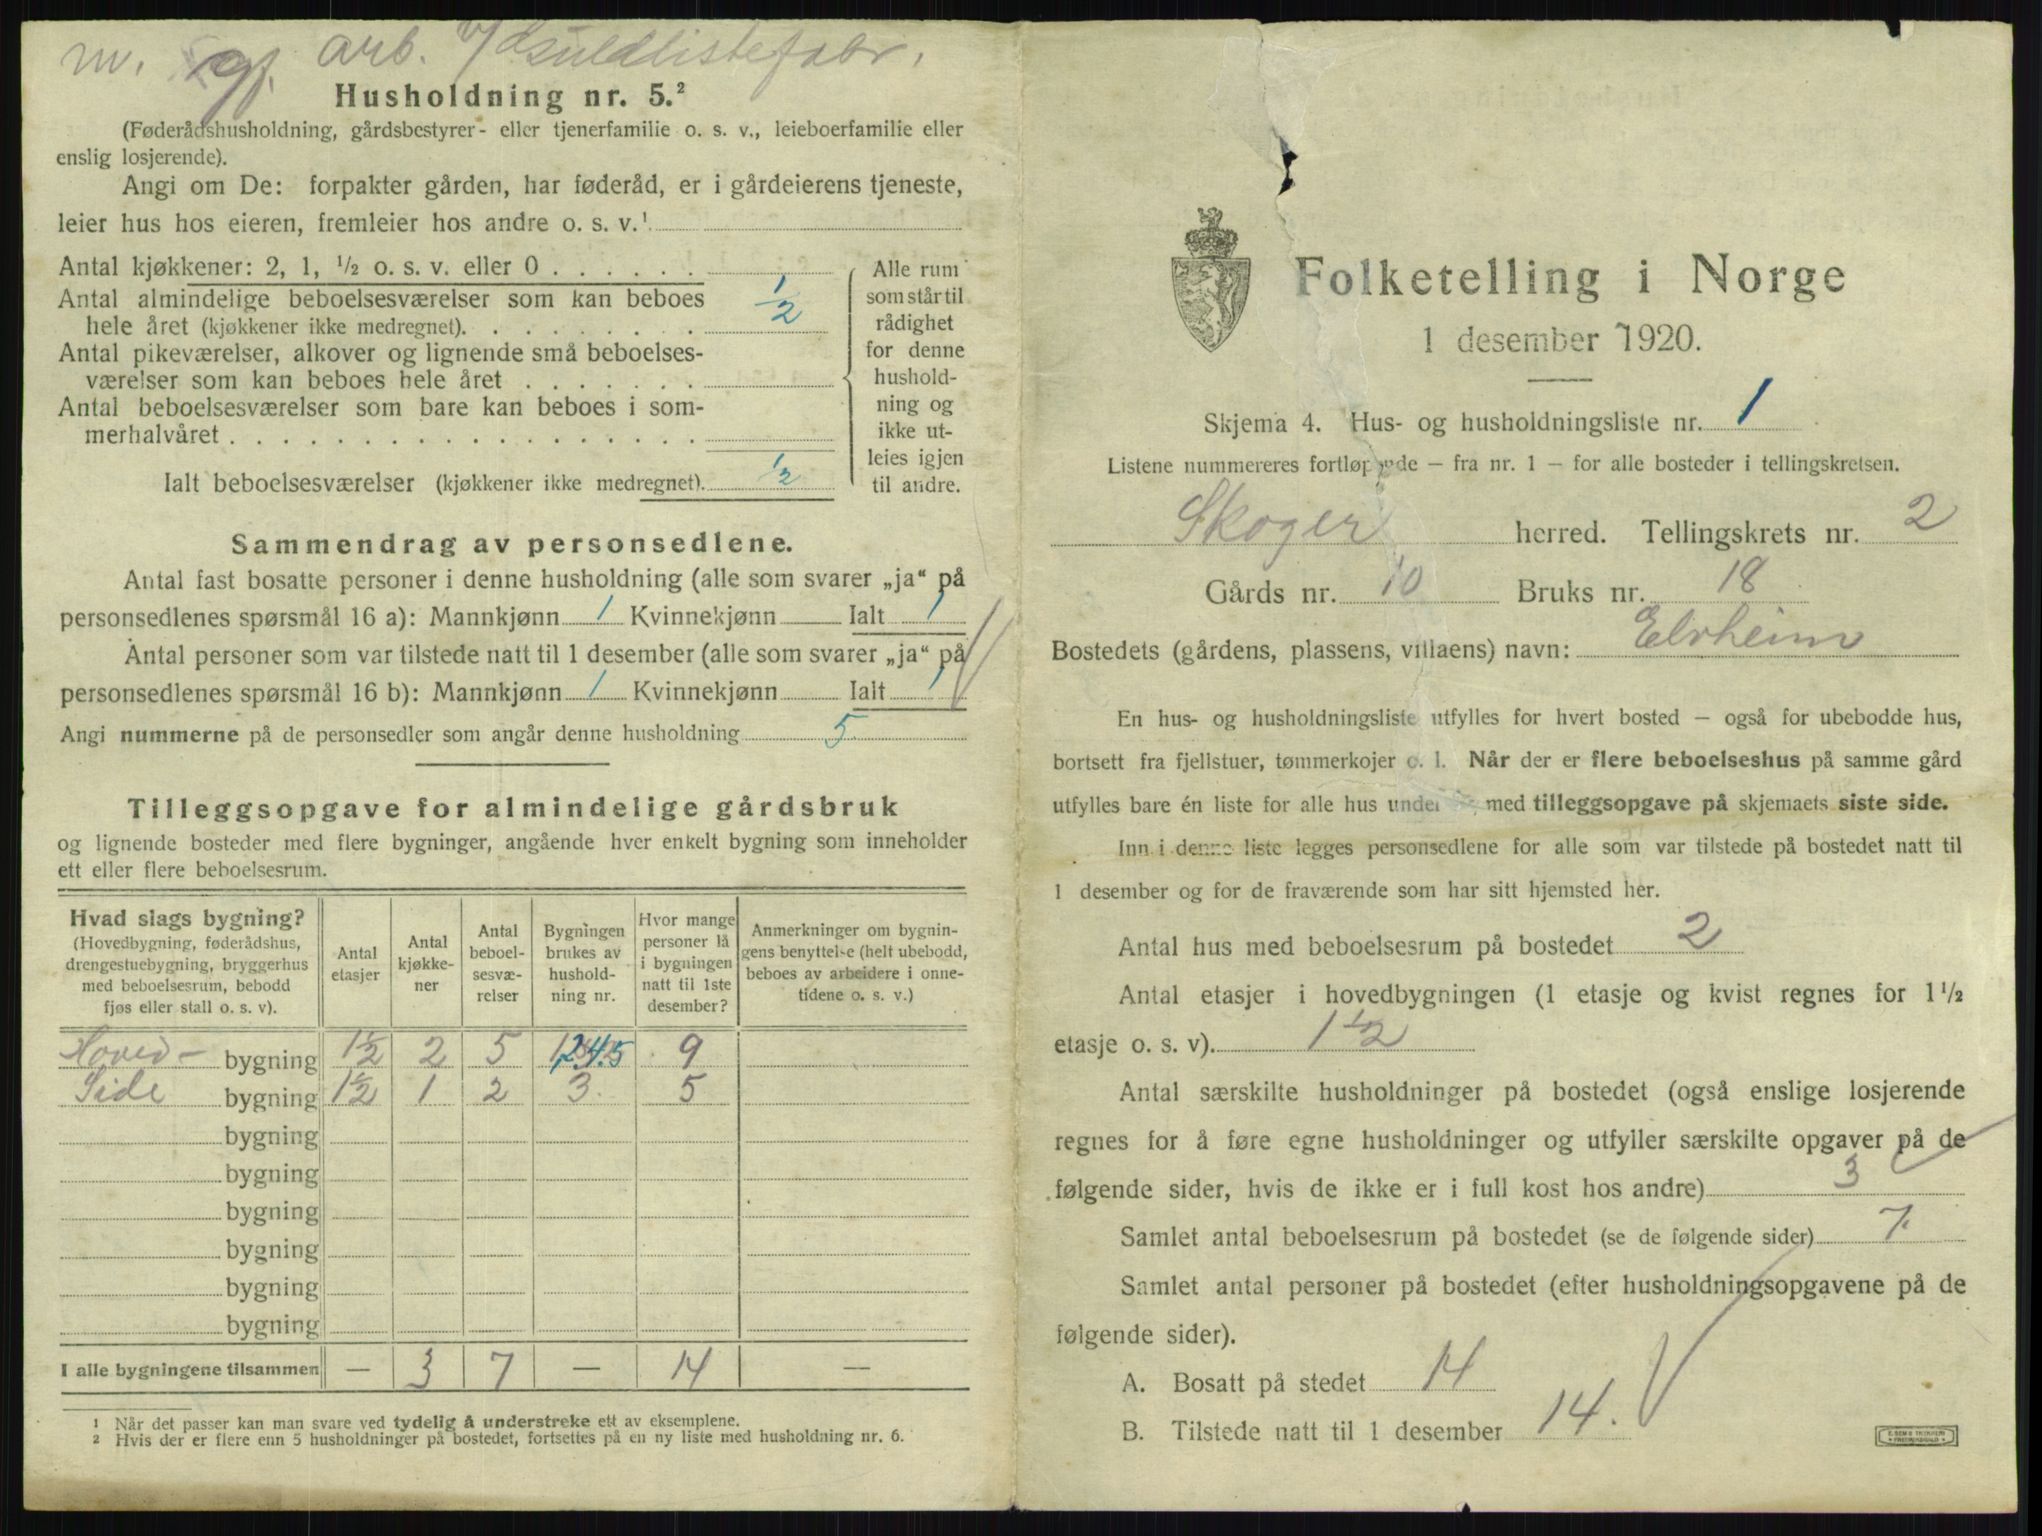 m. gf. arb. v/Guldlistefabr.
Husholdning nr. 5.²
(Føderådshusholdning, gårdsbestyrer- eller tjenerfamilie o. s. v., leieboerfamilie eller
enslig losjerende).
Angi om De: forpakter gården, har føderåd, er i gårdeierens tjeneste,
leier hus hos eieren, fremleier hos andre o. s. v.¹
Antal kjøkkener: 2, 1, ½ o. s. v. eller 0
Antal almindelige beboelsesværelser som kan beboes
hele året (kjøkkener ikke medregnet). ½
Antal pikeværelser, alkover og lignende små beboelses-
værelser som kan beboes hele året
Antal beboelsesværelser som bare kan beboes i som-
merhalvåret
Ialt beboelsesværelser (kjøkkener ikke medregnet). ½
Alle rum
som står til
rådighet
for denne
hushold-
ning og
ikke ut-
leies igjen
til andre.
Sammendrag av personsedlene.
Antal fast bosatte personer i denne husholdning (alle som svarer „ja“ på
personsedlenes spørsmål 16 a): Mannkjønn 1 Kvinnekjønn Ialt 1
Antal personer som var tilstede natt til 1 desember (alle som svarer „ja“ på
personsedlenes spørsmål 16 b): Mannkjønn 1 Kvinnekjønn Ialt 1
Angi nummerne på de personsedler som angår denne husholdning 5
Tilleggsopgave for almindelige gårdsbruk
og lignende bosteder med flere bygninger, angående hver enkelt bygning som inneholder
ett eller flere beboelsesrum.
Hvad slags bygning?
(Hovedbygning, føderådshus,
drengestuebygning, bryggerhus
med beboelsesrum, bebodd
fjøs eller stall o. s. v).
Antal
etasjer
Antal
kjøkke-
ner
Antal
beboel-
sesvæ-
relser
Bygningen
brukes av
hushold-
ning nr.
Hvor mange
personer lå
i bygningen
natt til 1ste
desember?
Anmerkninger om bygnin-
gens benyttelse (helt ubebodd,
beboes av arbeidere i onne-
tidene o. s. v.)
Hoved- bygning 1½ 2 5 1,2.4.5 9
Side bygning 1½ 1 2 3. 5
bygning
bygning
bygning
bygning
bygning
bygning
I alle bygningene tilsammen — 3 7 — 14 —
¹ Når det passer kan man svare ved tydelig å understreke ett av eksemplene.
² Hvis der er flere enn 5 husholdninger på bostedet, fortsettes på en ny liste med husholdning nr. 6.
Folketelling i Norge
1 desember 1920.
Skjema 4. Hus- og husholdningsliste nr. 1
Listene nummereres fortløpende – fra nr. 1 – for alle bosteder i tellingskretsen.
Skoger herred. Tellingskrets nr. 2
Gårds nr. 10 Bruks nr. 18
Bostedets (gårdens, plassens, villaens) navn: Elvheim
En hus- og husholdningsliste utfylles for hvert bosted – også for ubebodde hus,
bortsett fra fjellstuer, tømmerkojer o. l. Når der er flere beboelseshus på samme gård
utfylles bare én liste for alle hus under med tilleggsopgave på skjemaets siste side.
Inn i denne liste legges personsedlene for alle som var tilstede på bostedet natt til
1 desember og for de fraværende som har sitt hjemsted her.
Antal hus med beboelsesrum på bostedet 2
Antal etasjer i hovedbygningen (1 etasje og kvist regnes for 1½
etasje o. s. v). 1½
Antal særskilte husholdninger på bostedet (også enslige losjerende
regnes for å føre egne husholdninger og utfyller særskilte opgaver på de
følgende sider, hvis de ikke er i full kost hos andre) 3
Samlet antal beboelsesrum på bostedet (se de følgende sider) 7.
Samlet antal personer på bostedet (efter husholdningsopgavene på de
følgende sider).
A. Bosatt på stedet 14
B. Tilstede natt til 1 desember 14.